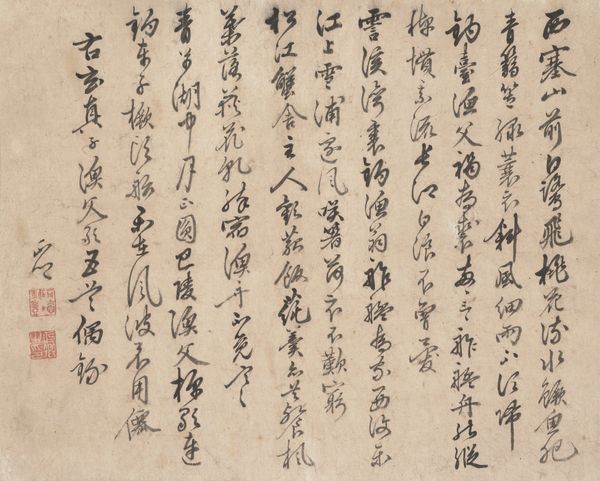 西塞山前白鷺飛桃花流水鱖魚肥
青篛笠綠蓑衣斜風細雨不須歸
釣臺漁父褐為裘兩三舴艋舟能縱
棹慣乘流長江白浪不曾憂
霅溪灣裏釣漁翁舴艋為家西復東
江上雪浦邊風笑著荷衣不歎窮
松江蟹舍主人歡菰飯蓴羹亦共餐楓
葉落荻花乾醉宿漁舟不覺寒
青草湖中月正圓巴陵漁父棹歌連
釣車子橛頭船樂在風波不用僊
右玄真子漁父歌五首偶錄